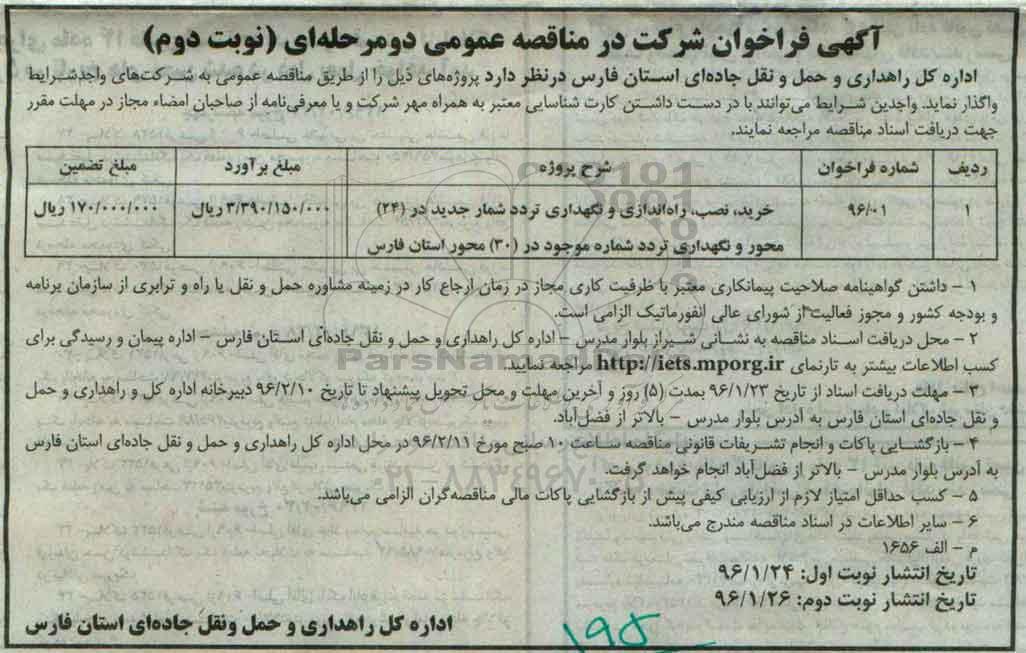 آگهی فراخوان شرکت در مناقصه عمومی دومرحله‌ای (نوبت دوم)
اداره کل راهداری و حمل و نقل جاده‌ای استان فارس درنظر دارد پروژه‌های ذیل را از طریق مناقصه عمومی به شرکت‌های واجدشرایط
واگذار نماید. واجدین شرایط می‌توانند با در دست داشتن کارت شناسایی معتبر به همراه مهر شرکت و یا معرفی‌نامه از صاحبان امضاء مجاز در مهلت مقرر
جهت دریافت اسناد مناقصه مراجعه نمایند.
ردیف شماره فراخوان شرح پروژه مبلغ برآورد مبلغ تضمین
۱ ۹۶/۰۱ خرید، نصب، راه‌اندازی و نگهداری تردد شمار جدید در (۲۴) ۳/۳۹۰/۱۵۰/۰۰۰ ریال ۱۷۰/۰۰۰/۰۰۰ ریال
محور و نگهداری تردد شماره موجود در (۳۰) محور استان فارس
۱ – داشتن گواهینامه صلاحیت پیمانکاری معتبر با ظرفیت کاری مجاز در زمان ارجاع کار در زمینه مشاوره حمل و نقل یا راه و ترابری از سازمان برنامه
و بودجه کشور و مجوز فعالیت از شورای عالی انفورماتیک الزامی است.
۲ – محل دریافت اسناد مناقصه به نشانی شیراز بلوار مدرس – اداره کل راهداری و حمل و نقل جاده‌ای استان فارس – اداره پیمان و رسیدگی برای
کسب اطلاعات بیشتر به تارنمای http://iets.mporg.ir مراجعه نمایید.
۳ – مهلت دریافت اسناد از تاریخ ۹۶/۱/۲۳ بمدت (۵) روز و آخرین مهلت و محل تحویل پیشنهاد تا تاریخ ۹۶/۲/۱۰ دبیرخانه اداره کل و راهداری و حمل
و نقل جاده‌ای استان فارس به آدرس بلوار مدرس – بالاتر از فضل‌آباد.
۴ – بازگشایی پاکات و انجام تشریفات قانونی مناقصه ساعت ۱۰ صبح مورخ ۹۶/۲/۱۱ در محل اداره کل راهداری و حمل و نقل جاده‌ای استان فارس
به آدرس بلوار مدرس – بالاتر از فضل‌آباد انجام خواهد گرفت.
۵ – کسب حداقل امتیاز لازم از ارزیابی کیفی پیش از بازگشایی پاکات مالی مناقصه‌گران الزامی می‌باشد.
۶ – سایر اطلاعات در اسناد مناقصه مندرج می‌باشد.
م – الف ۱۶۵۶
تاریخ انتشار نوبت اول: ۹۶/۱/۲۴
تاریخ انتشار نوبت دوم: ۹۶/۱/۲۶
اداره کل راهداری و حمل ونقل جاده‌ای استان فارس
ParsNamad